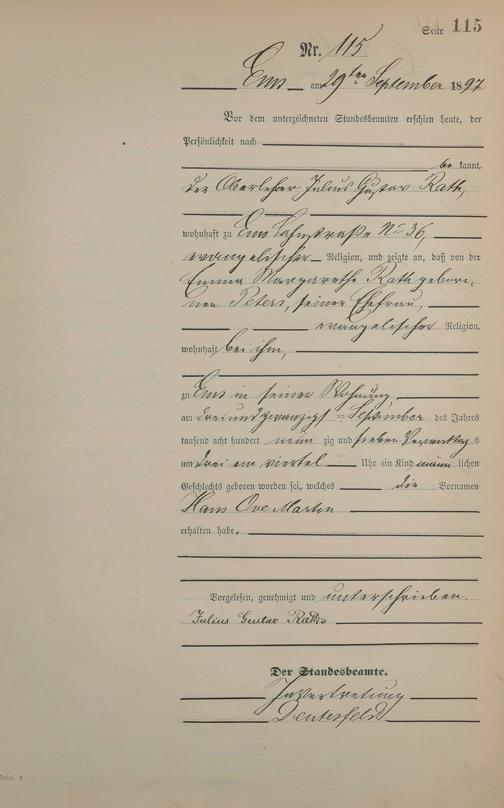 Seite 115
Nr. 115
Ems am 29ten September 1897
Vor dem unterzeichneten Standesbeamten erschien heute, der
Persönlichkeit nach
be kannt,
der Oberlehrer Julius Gustav Rath,
wohnhaft zu Ems Lahnstraße No 36,
evangelischer Religion, und zeigte an, daß von der
Emma Margarethe Rath gebore-
nen Peters, seiner Ehefrau,
evangelischer Religion,
wohnhaft bei ihm,
zu Ems in seiner Wohnung,
am dreiundzwanzigsten September des Jahres
tausend acht hundert neun zig und sieben Vormittags
um drei ein viertel Uhr ein Kind männ lichen
Geschlechts geboren worden sei, welches die Vornamen
Hans Ove Martin
erhalten habe.
Vorgelesen, genehmigt und unterschrieben.
Julius Gustav Rath
Der Standesbeamte.
In Vertretung